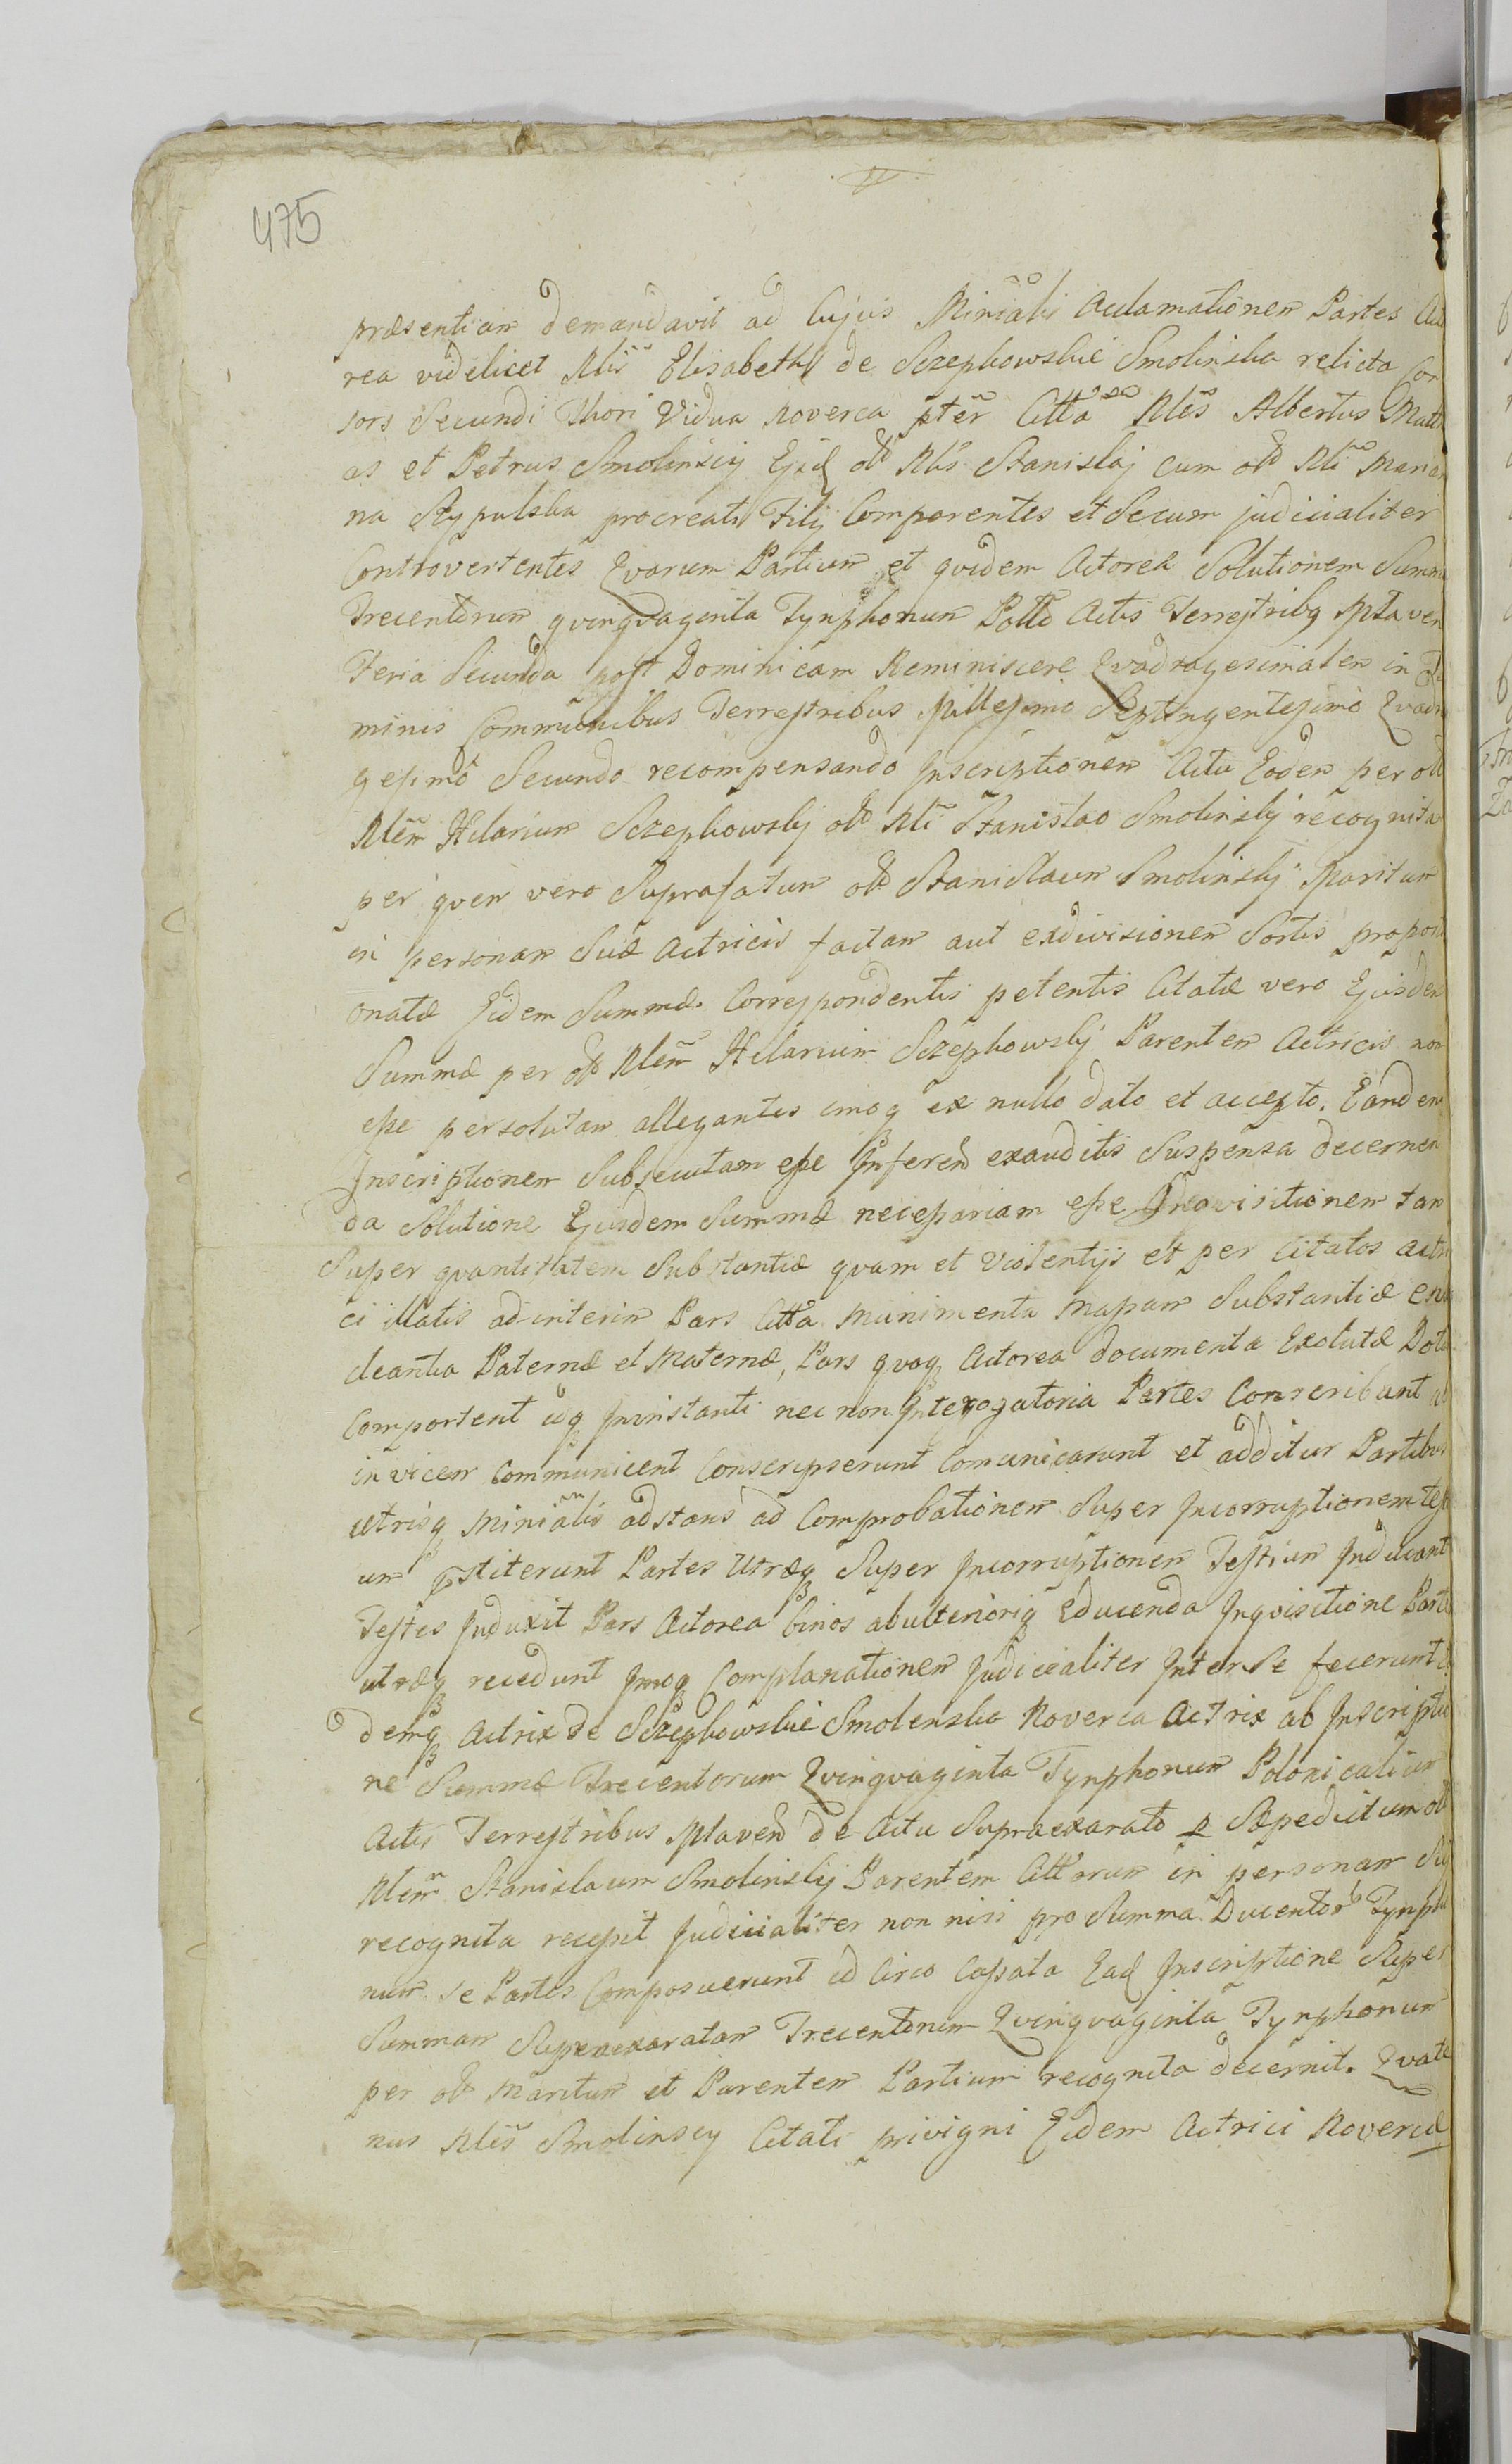 475
præsentiam demandavit ad Cujus Minialis Acclamationem Partes Acto
rea videlicet Nlis Elisabeth de Sczepkowskie Smolinska relicta Con
sors Secundi Thori Vidua Noverca pter Citta Nles Albertus Matt
as et Petrus Smolinscy Ejsd olb Nlis Stanislaj cum olb Nli Marian
na Stypulska procreati Filij Comparentes et Secum judicialiter
Controvertentes Qvarum Partium et qvidem Actoreæ Solutionem Summæ
Trecentorum qvinqvaginta Tynphonum Pollo Actis Terrestribq Mlaven
Feria Secunda post Dominicam Reminiscere Qvadragesimalem in Ter
minis Communibus Terrestribus Millesimo Septingentesimo Qvadra
gesimo Secundo recompensando Inscriptionem Actu Eodem per olb
Nlem Hilarium Sczepkowsky olb Nli Stanislao Smolinsky recognita
per qvem vero Suprafatum olb Stanislaum Smolinsky Maritum
in personam Suæ Actricis factam aut exdivisionem Sortis proporti
onatæ Eidem Summæ Correspondentis petentis Citatæ vero Ejusdem
Summæ per olb Nlem Hilarium Sczepkowsky Parentem Actricis non
esse persolutam allegantis imoq ex nullo dato et accepto. Eandem
Inscriptionem Subsecutam esse Inferend exauditis Suspensa decernen
da Solutione Ejusdem Summæ necessariam esse Inqvisitionem tam
Super qvantitatem Substantiæ qvam et Violentijs et per Citatos actri
ci illatis ad interim Pars Citta Munimenta Mapam Substantiæ enu
cleantia Paternæ et Maternæ, Pars qvoq Actorea documenta Exolutæ Dotis
Comportent idq Ininstanti nec non Interogatoria Partes Conscribant ad
invicem Communicent Conscripserunt Comunicarunt et additur Partibus
utrisq Minialis adstans ad Comprobationem Super Incorruptionem testi
um Pstiterunt Partes Utræq Super Incorruptionem Testium Inducant
Testes Induxit Pars Actorea binos ab ulterioriq Educenda Inqvisitione Partes
utræq recedunt Imoq Complanationem Judicialiter Inter Se fecerunt i
demq Actrix de Sczepkowskie Smolenska Noverca Actrix ab Inscriptio
ne Summæ Trecentorum Qvinqvaginta Tynphonum Polonicalium
Actis Terrestribus Mlavend de Actu Supraexarato p Sæpedictum olb
Nlem Stanislaum Smolinsky Parentem Cittorum in personam Sui
recognita recepit Judicialiter non nisi pro Summa Ducentor Tynpho
num se Partes Composuerunt id Circo Cassata Ead Inscriptione Super
Summam Supraexaratam Trecentorum Qvinqvaginta Tynphonum
per olb Maritum et Parentem Partium recognita decernit. Qvate
nus Nles Smolinscy Citati privigni Eidem Actrici Novercæ